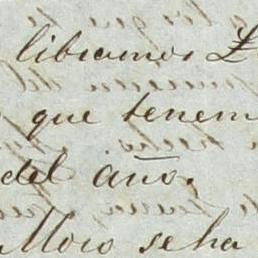 libramos £
que tenem
del año.
Moro se ha